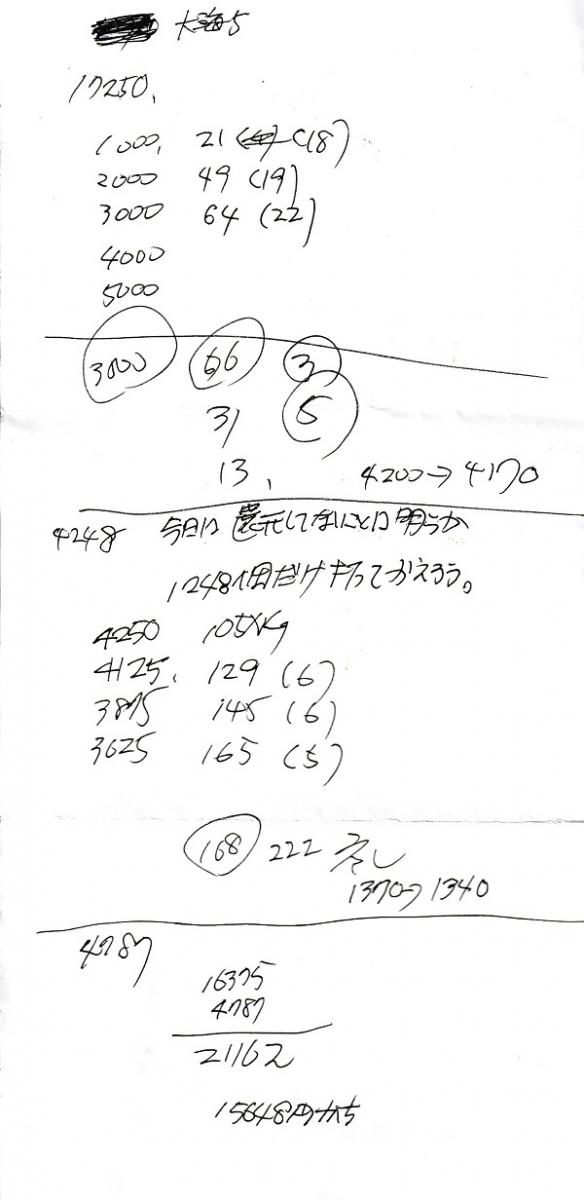 大海5
17250.
1000. 21 (18)
2000 49 (19)
3000 64 (22)
4000
5000
3000 66 3
31 5
13. 4200→4170
4248 今日は還元してないとは明らか
1248個だけ打ってかえろう。
4250 105
4125. 129 (6)
3875 145 (6)
3625 165 (5)
168 222
1370→1340
4787
16375
4787
21162
15648円かち